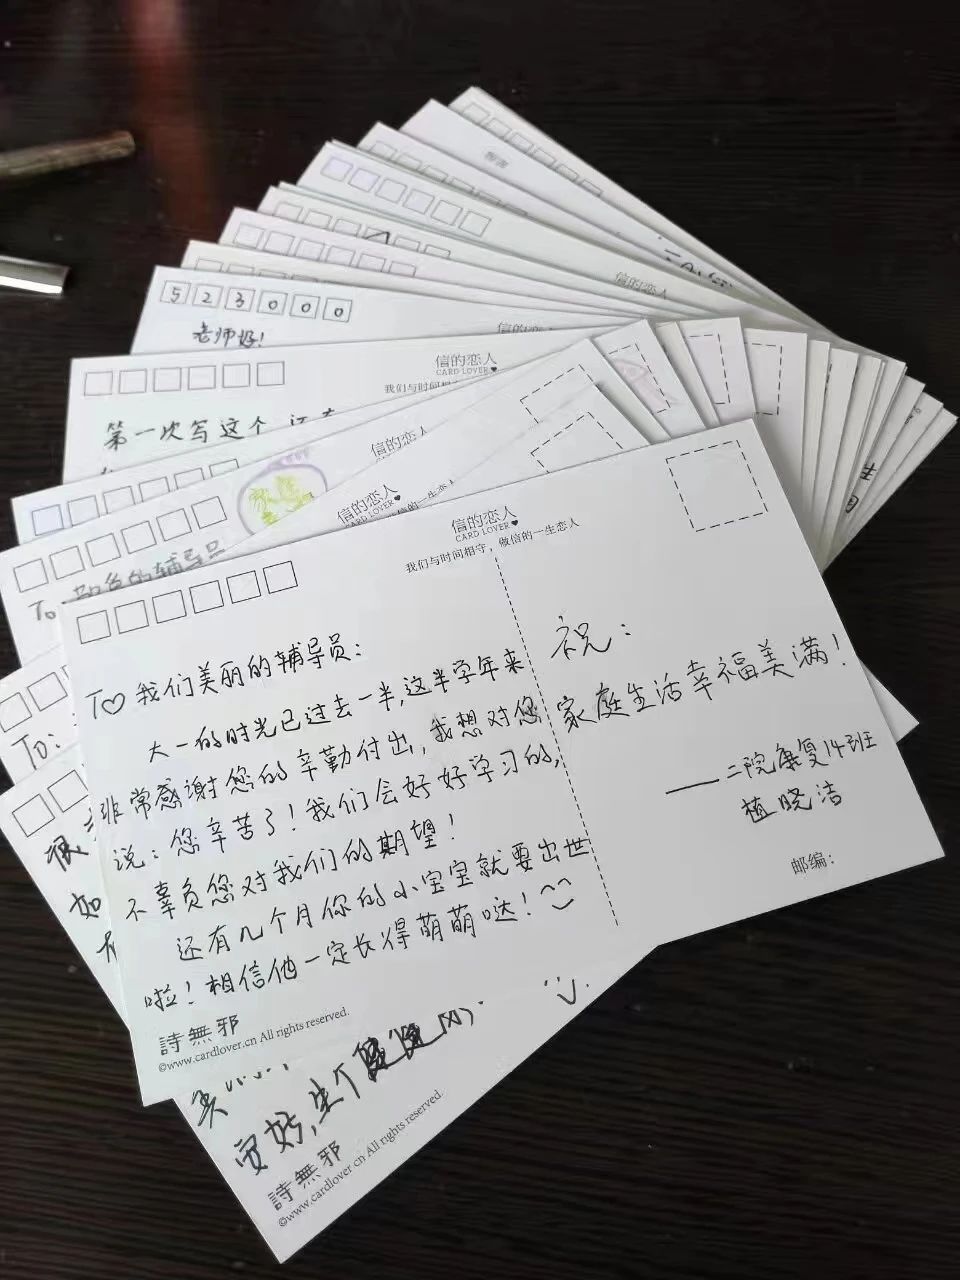 智言
信的恋人
5 2 3 0 0 0
老师好!
信的恋人
CARD LOVER
我们与时间相
第一次写这个
信的恋人
CARD LOVER
信的恋人
CARD LOVER
信的一生恋人
To
的辅导员
To:
信的恋人
CARD LOVER
我们与时间相守，做信的一生恋人
To♡我们美丽的辅导员:
大一的时光已过去一半,这半学年来
非常感谢您的辛勤付出,我想对您
说:您辛苦了!我们会好好学习的,
不辜负您对我们的期望!
还有几个月你的小宝宝就要出世
啦!相信他一定长得萌萌哒!
祝:
家庭生活幸福美满!
——二院康复14班
植晓洁
邮编:
詩無邪
©www.cardlover.cn All rights reserved.
很
如
生个健健
詩無邪
©www.cardlover.cn All rights reserved.